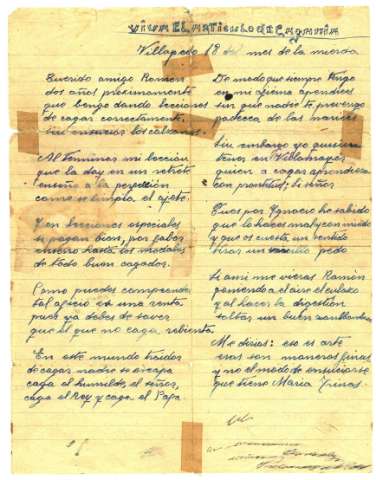 VIVA EL ARTICULO DE CAGANIA
Villapedo 18 del mes de la mierda
Querido amigo Ramon
dos años proximamente
que bengo dando lecciones
de cagar correctamente
sin ensucias los calzones.
Al terminar mi leccion
que la doy en un retrete
enseño a la perfeccion
como se limpia el ojete.
Y en lecciones especiales
si pagan bien, por favor
enseño hasta los modales
de todo buen cagador.
Como puedes comprender
tal oficio es una renta
pues ya debes de saver
que el que no caga rebienta.
En este mundo traidor
de cagar nadie se escapa
caga el humilde, el señor,
caga el Rey y caga el Papa.
De modo que siempre tengo
en mi oficina aprendices
sin que nadie te prevengo
padezca de las narices
Sin embargo yo quisiera
teneros en Villamayor
quien a cagar aprendiera
con prontitud, si señor
Pues por Ignacio he sabido
que lo haces mal y con miedo
y que os cuesta un sentido
tiras un sencillo pedo
Si a mi me vieras Ramón
poniendo al aire el culazo
y al hacer la digestión
soltar un buen
Me dirias: eso es arte
esas son maneras finas
y no el modo de ensuciarse
que tiene Maria